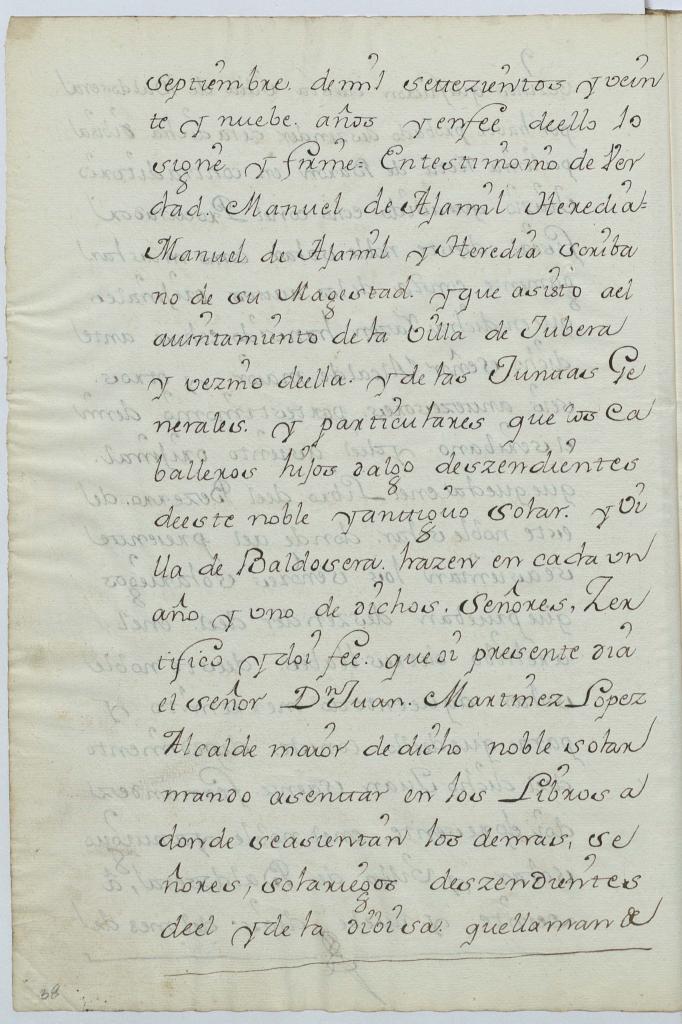 septiembre. de mil settezientos y vein
te y nuebe. años y enfee deello lo
signe y firme = Entestimonio de Ver
dad. Manuel de Ajamil Heredia =
Manuel de Ajamil y Heredia scriba
no de su Magestad. y que asisto ael
aiuntamiento de la Villa de Jubera
y vezino deella. y de las Junttas Ge
nerales. y particulares que los Ca
balleros hijos dalgo deszendientes
deeste noble y anttiguo solar. y Vi
lla de Baldosera. hazen en cada vn
año y vno de dichos. Señores, Zer
tifico y doi fee. que oi presente dia
el señor Dn Juan. Martinez Lopez
Alcalde maior de dicho noble solar
mando asenttar en los Libros a
donde seasientan los demas, se
ñores, solariegos deszendientes
deel y de la dibisa. quellaman de
38